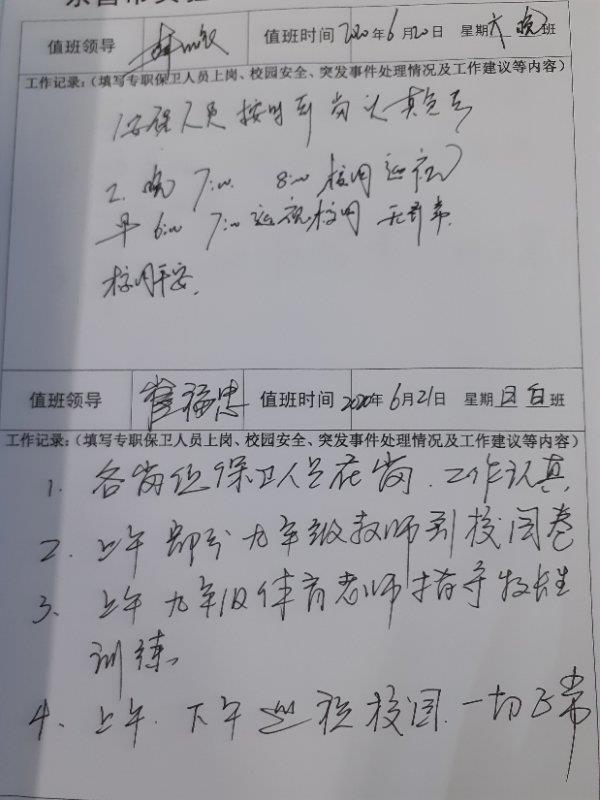 值班领导 值班时间 2020年6月20日 星期六 晚班
工作记录:(填写专职保卫人员上岗、校园安全、突发事件处理情况及工作建议等内容)
1.安保人员按时到岗认真负责
2.晚7:00 8:00校园巡视
早6:00 7:00巡视校园 无异常.
校园平安.
值班领导 崔福忠 值班时间 2020年6月21日 星期日白班
工作记录:(填写专职保卫人员上岗、校园安全、突发事件处理情况及工作建议等内容)
1.各岗位保卫人员在岗.工作认真
2、上午部分九年级教师到校阅卷
3、上午九年级体育老师指导特长生
训练。
4、上午.下午巡视校园.一切正常